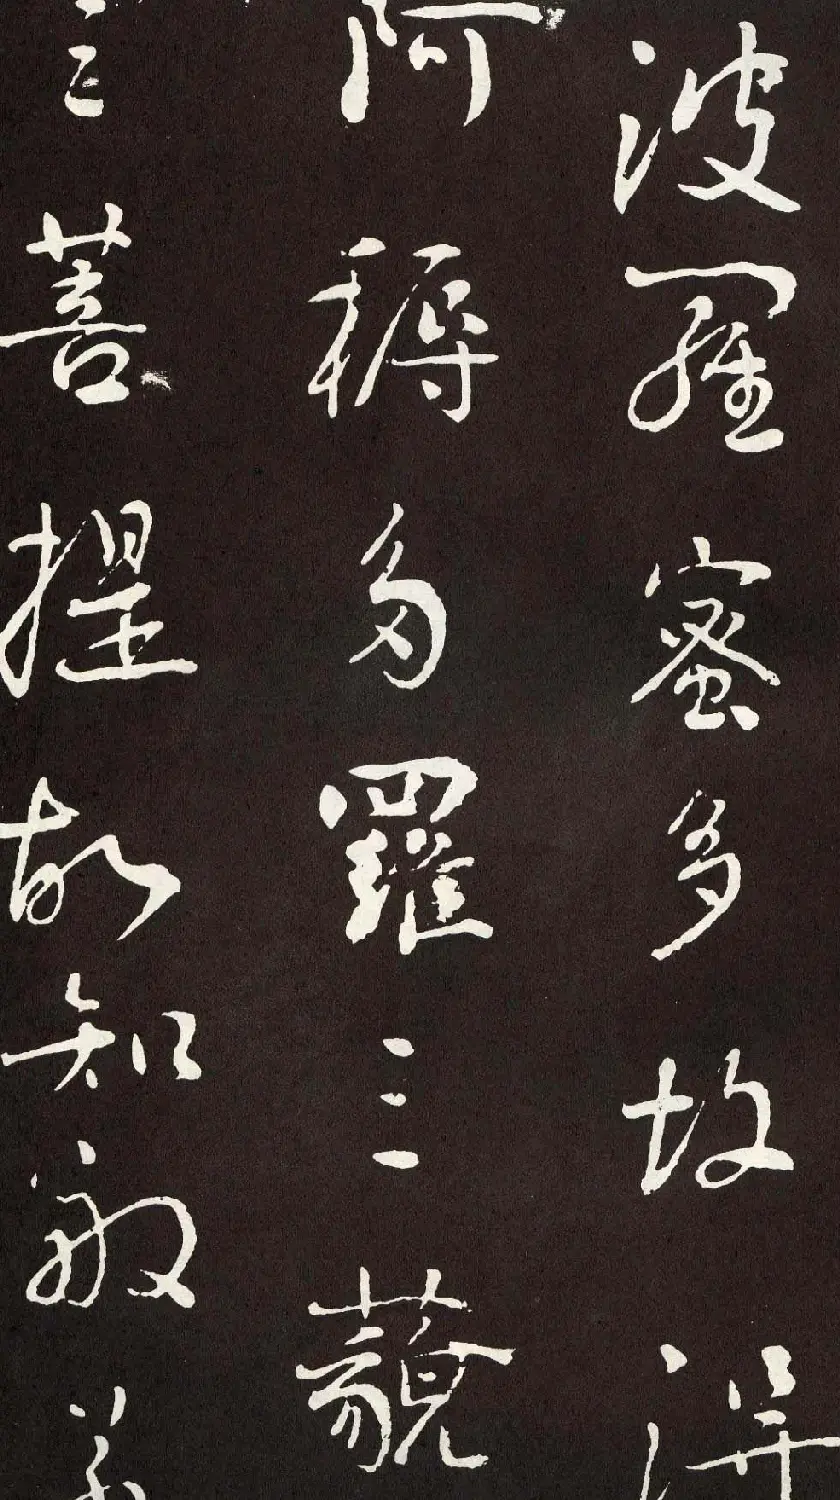 波羅蜜多故得
阿耨多羅三藐
三菩提故知般若